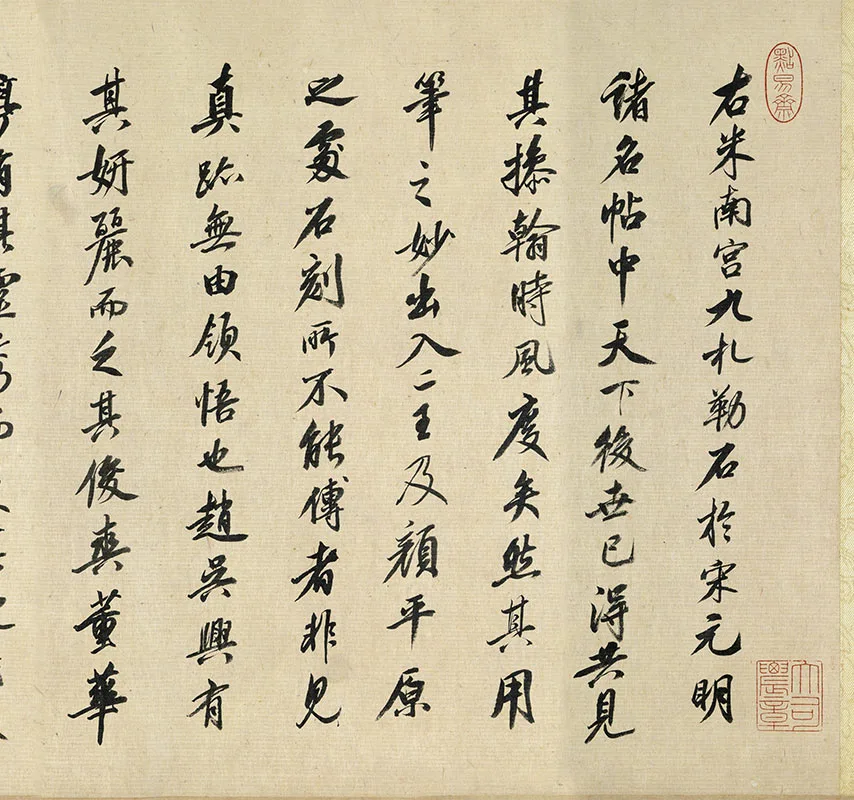 點易齋
右米南宮九札勒石於宋元明
諸名帖中天下後世已得共見
其操翰時風度矣然其用
筆之妙出入二王及顏平原
之處石刻所不能傳者非見
真跡無由領悟也趙吳興有
其妍麗而乏其俊爽董華